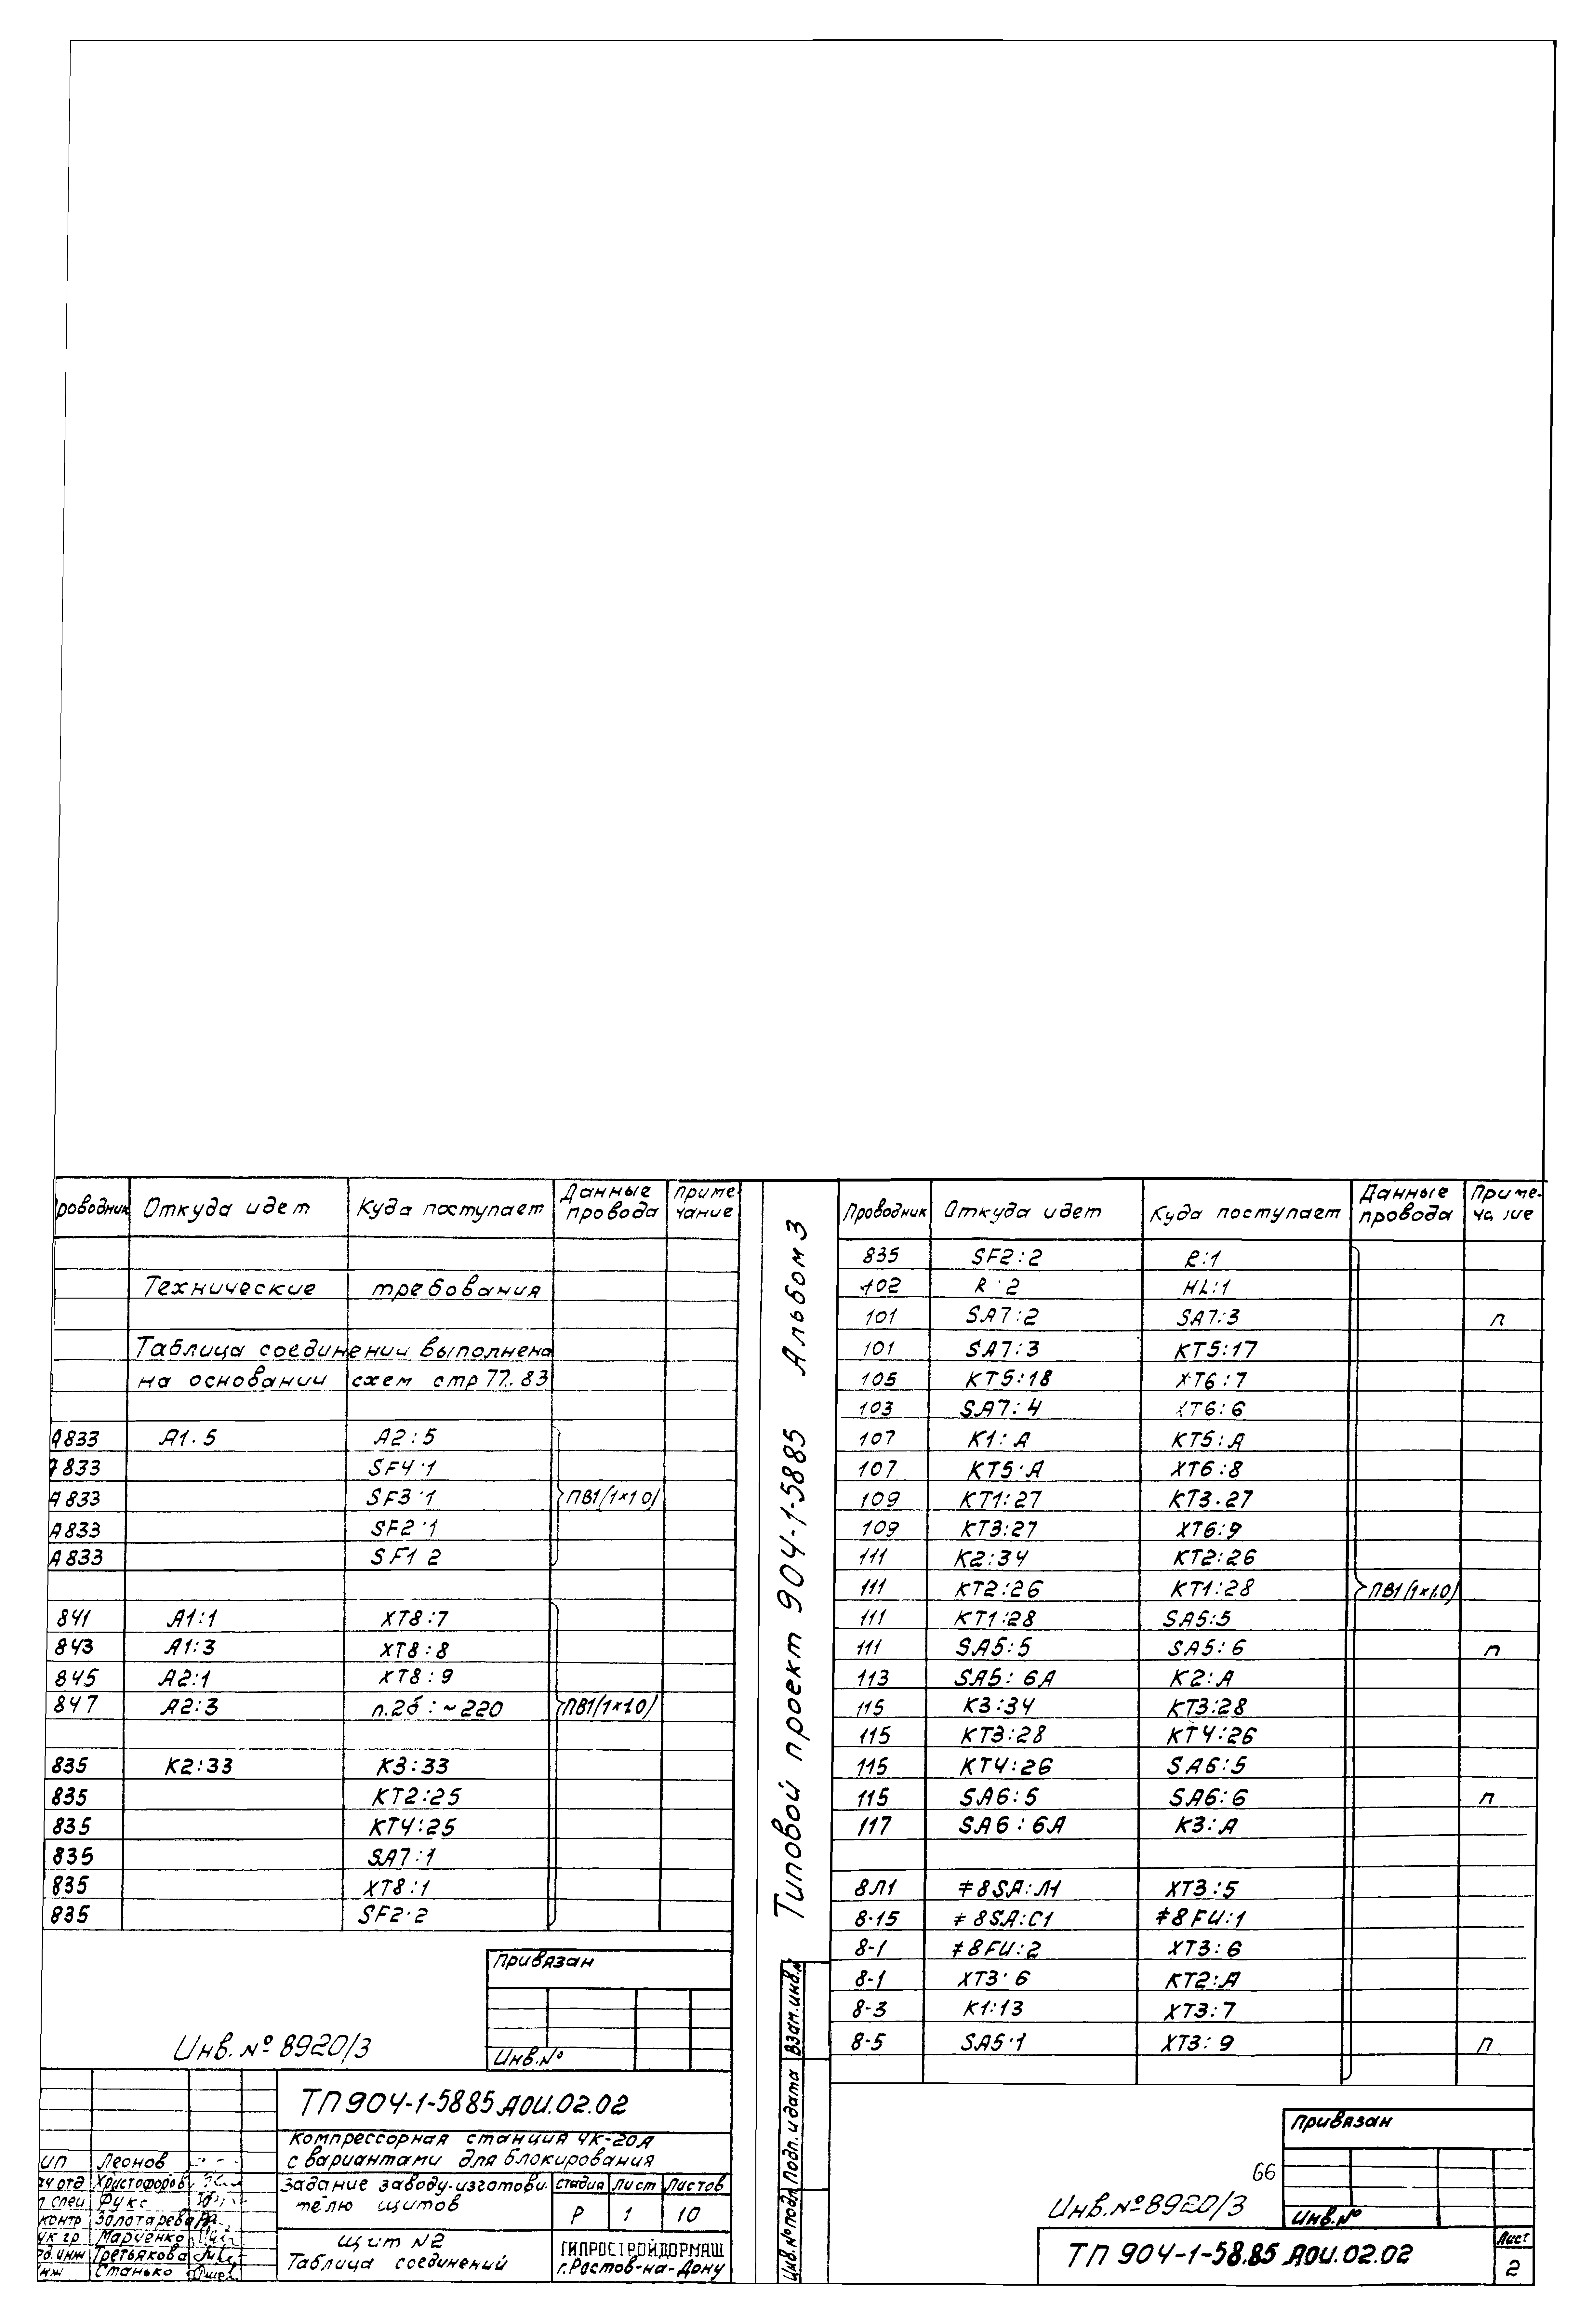 Проводник Откуда идет Куда поступает Данные провода Примечание
Технические требования
Таблица соединений выполнена
на основании схем стр 77..83
А833 А1.5 А2:5
А833 SF4.1
А833 SF3.1 ПВ1(1×1.0)
А833 SF2.1
А833 SF1 2
841 А1:1 ХТ8:7
843 А1:3 ХТ8:8
845 А2:1 ХТ8:9
847 А2:3 п.2б:~220 ПВ1(1×1.0)
835 К2:33 К3:33
835 КТ2:25
835 КТ4:25
835 SA7:1
835 ХТ8:1
835 SF2.2
Привязан
Инв.№
Инв.№ 8920/3
ТП 904-1-58 85 АОИ.02.02
Компрессорная станция 4К-20А
с вариантами для блокирования
Задание заводу-изготови-
телю щитов
Стадия Лист Листов
Р 1 10
Щит N2
Таблица соединений
ГИПРОСТРОЙДОРМАШ
г.Ростов-на-Дону
ИП Леонов
ач отд Христофоров
л спец Фукс
контр Золотарева
ук гр Марченко
ед.инж Третьякова
инж Станько
Типовой проект 904-1-5885 Альбом 3
Взам.инв.№
Подп. и дата
Инв.№ подл
Проводник Откуда идет Куда поступает Данные провода Примечание
835 SF2:2 R:1
102 R.2 HL:1
101 SA7:2 SA7:3 п
101 SA7:3 КТ5:17
105 КТ5:18 ХТ6:7
103 SA7:4 ХТ6:6
107 К1:А КТ5:А
107 КТ5.А ХТ6:8
109 КТ1:27 КТ3.27
109 КТ3:27 ХТ6:9
111 К2:34 КТ2:26
111 КТ2:26 КТ1:28 ПВ1(1×1.0)
111 КТ1:28 SA5:5
111 SA5:5 SA5:6 п
113 SA5:6А К2:А
115 К3:34 КТ3:28
115 КТ3:28 КТ4:26
115 КТ4:26 SA6:5
115 SA6:5 SA6:6 п
117 SA6:6А К3:А
8Л1 ≠8SA:Л1 ХТ3:5
8-15 ≠8SA:С1 ≠8FU:1
8-1 ≠8FU:2 ХТ3:6
8-1 ХТ3.6 КТ2:А
8-3 К1:13 ХТ3:7
8-5 SA5.1 ХТ3:9 п
Привязан
Инв.№
66
Инв.№8920/3
ТП 904-1-58.85 АОИ.02.02
Лист
2